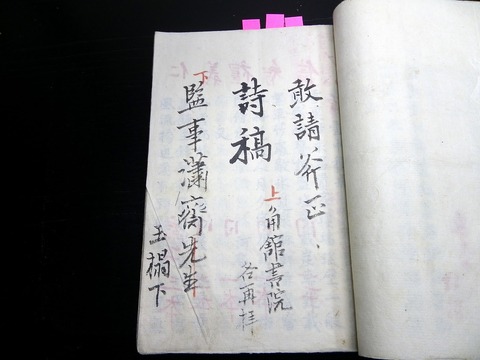 敢請斧正、
詩稿
上角館書院
各再拝
下監事瀟斎先生
玉榻下